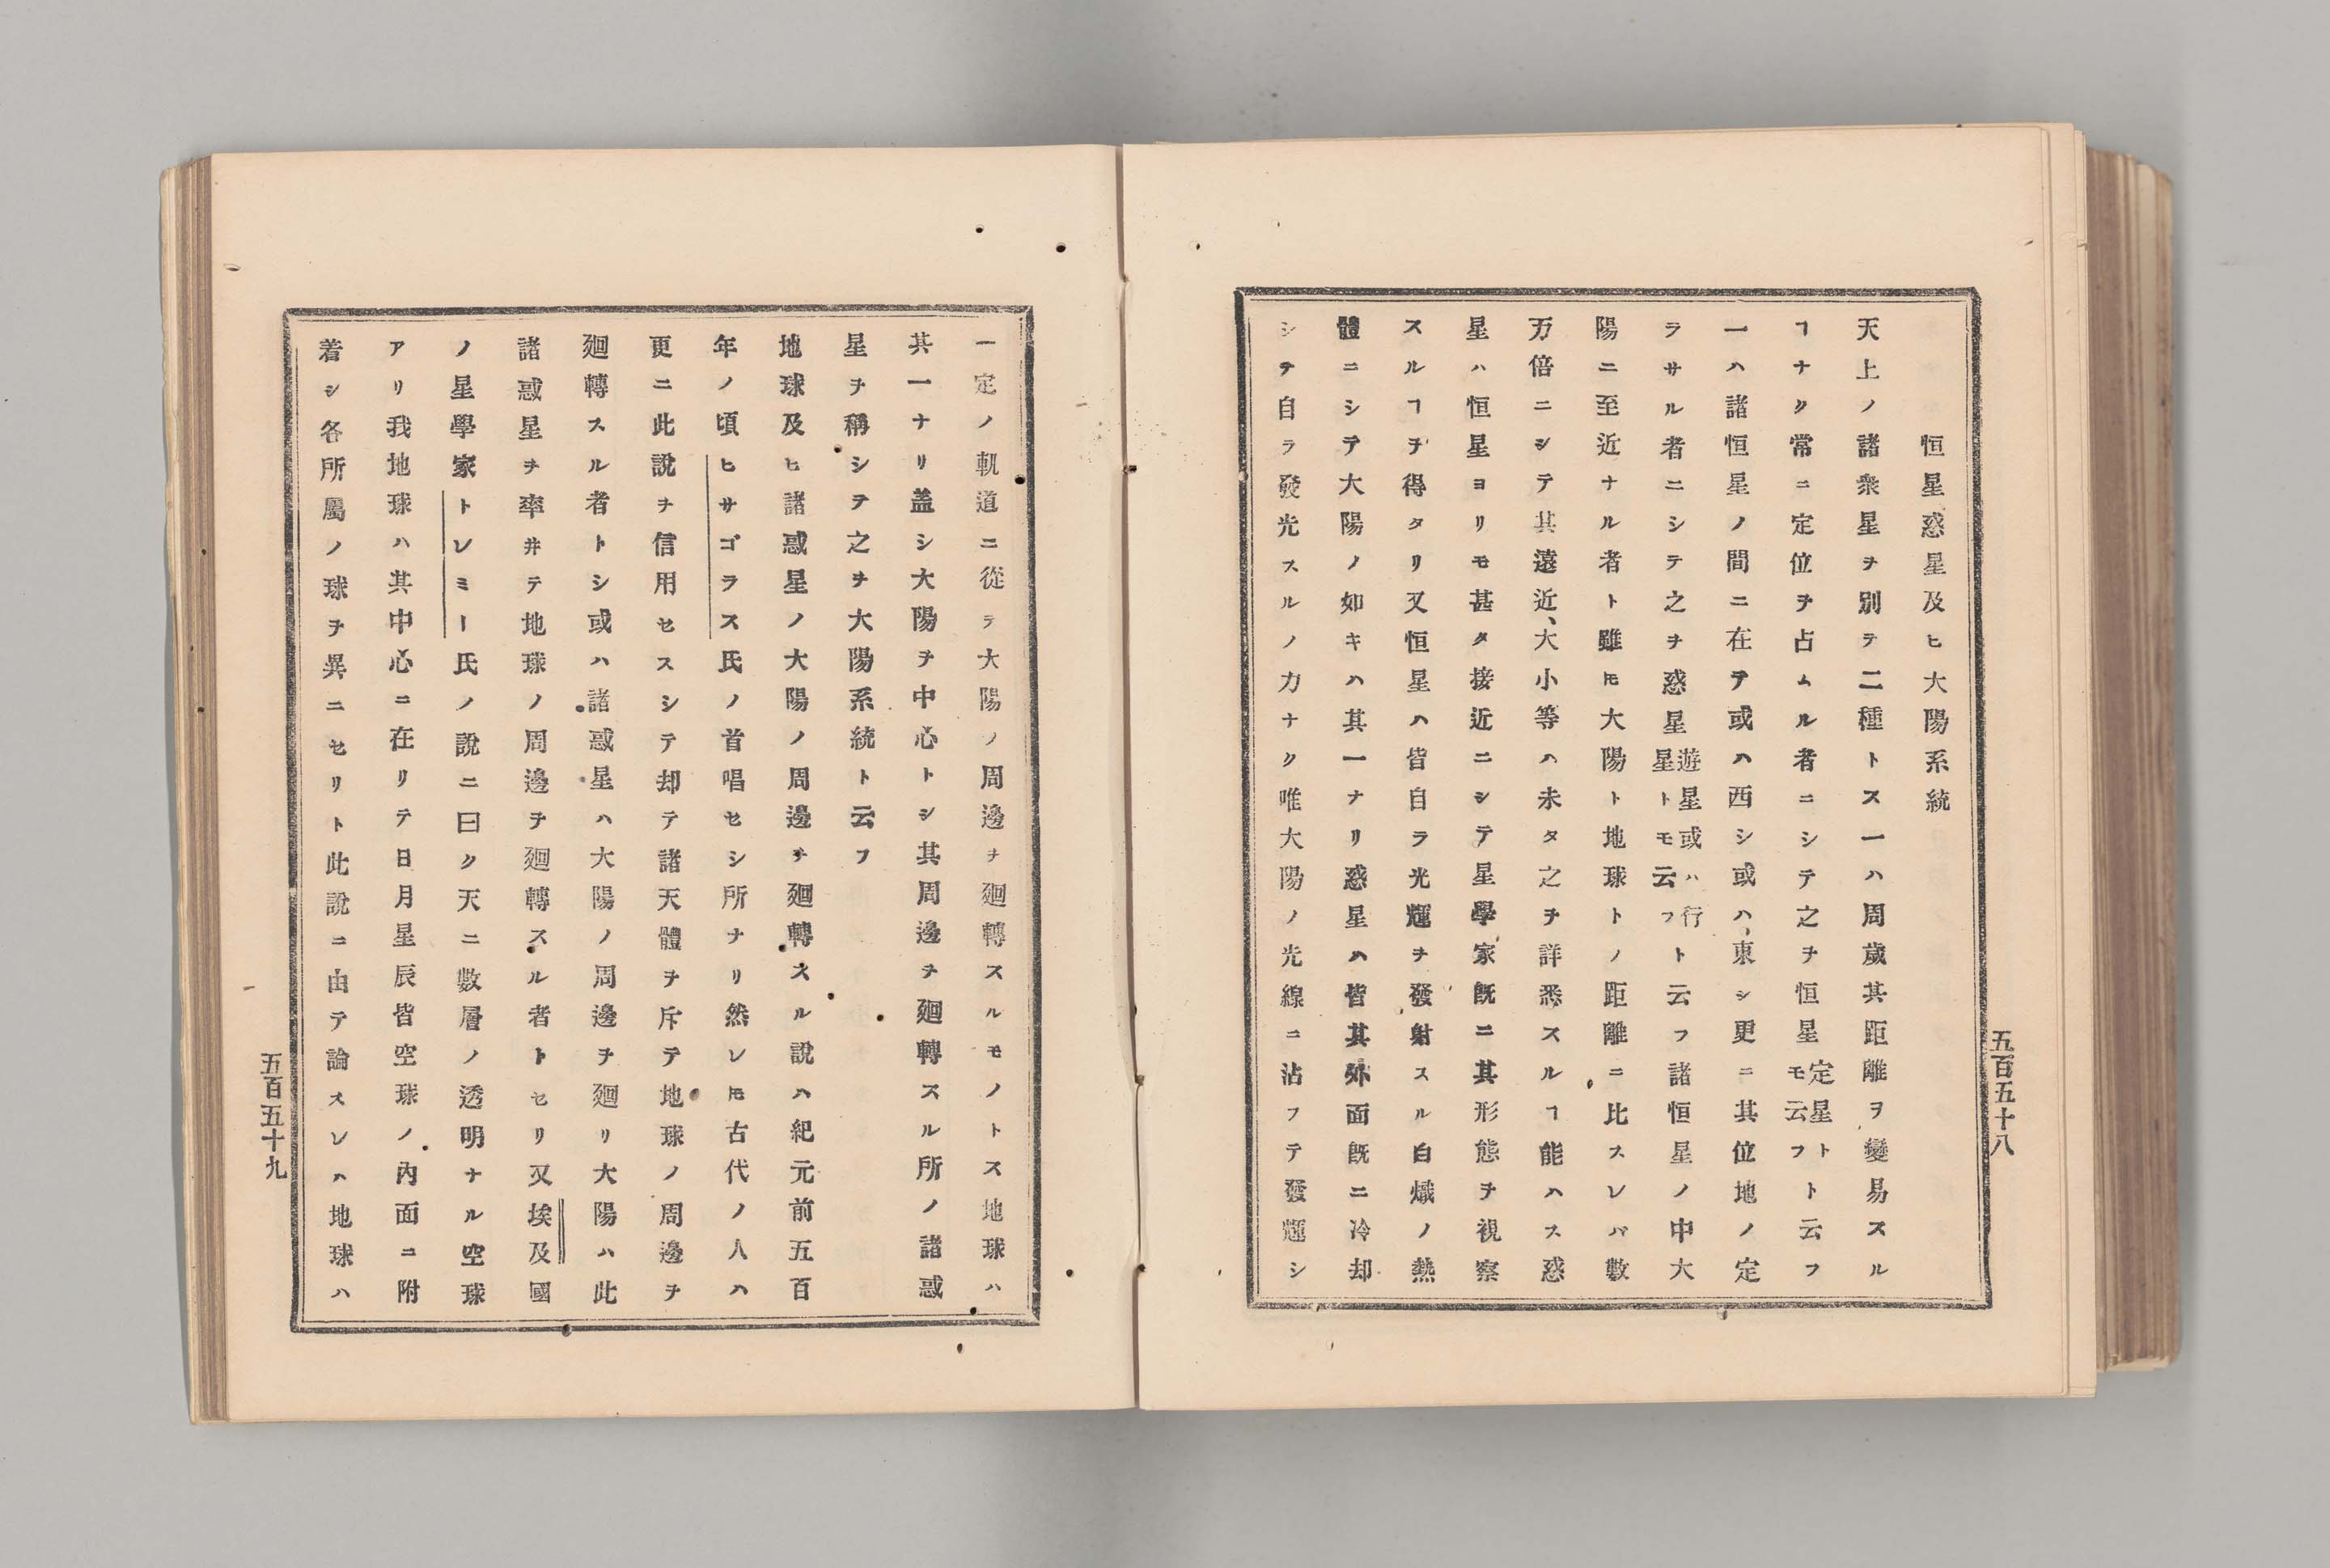 五百五十八
恒星惑星及ヒ大陽系統
天上ノ諸衆星ヲ別テ二種トス一ハ周歲其距離ヲ變易スル
ヿナク常ニ定位ヲ占ムル者ニシテ之ヲ恒星定星トモ云フト云フ
一ハ諸恒星ノ間ニ在テ或ハ西シ或ハ東シ更ニ其位地ノ定
ラサル者ニシテ之ヲ惑星遊星或ハ行星トモ云フト云フ諸恒星ノ中大
陽ニ至近ナル者ト雖𪜈大陽ト地球トノ距離ニ比スレバ數
万倍ニシテ其遠近、大小等ハ未タ之ヲ詳悉スルヿ能ハス惑
星ハ恒星ヨリモ甚タ接近ニシテ星學家既ニ其形態ヲ視察
スルヿヲ得タリ又恒星ハ皆自ラ光輝ヲ發射スル白熾ノ熱
體ニシテ大陽ノ如キハ其一ナリ惑星ハ皆其外面既ニ冷却
シテ自ラ發光スルノ力ナク唯大陽ノ光線ニ沾フテ發輝シ
一定ノ軌道ニ從テ大陽ノ周邊ヲ廻轉スルモノトス地球ハ
其一ナリ盖シ大陽ヲ中心トシ其周邊ヲ廻轉スル所ノ諸惑
星ヲ稱シテ之ヲ大陽系統ト云フ
地球及ヒ諸惑星ノ大陽ノ周邊ヲ廻轉スル說ハ紀元前五百
年ノ頃ヒサゴラス氏ノ首唱セシ所ナリ然レ𪜈古代ノ人ハ
更ニ此說ヲ信用セスシテ却テ諸天體ヲ斥テ地球ノ周邊ヲ
廻轉スル者トシ或ハ諸惑星ハ大陽ノ周邊ヲ廻リ大陽ハ此
諸惑星ヲ率井テ地球ノ周邊ヲ廻轉スル者トセリ又埃及國
ノ星學家トレミー氏ノ說ニ曰ク天ニ數層ノ透明ナル空球
アリ我地球ハ其中心ニ在リテ日月星辰皆空球ノ內面ニ附
着シ各所屬ノ球ヲ異ニセリト此說ニ由テ論スレハ地球ハ
五百五十九